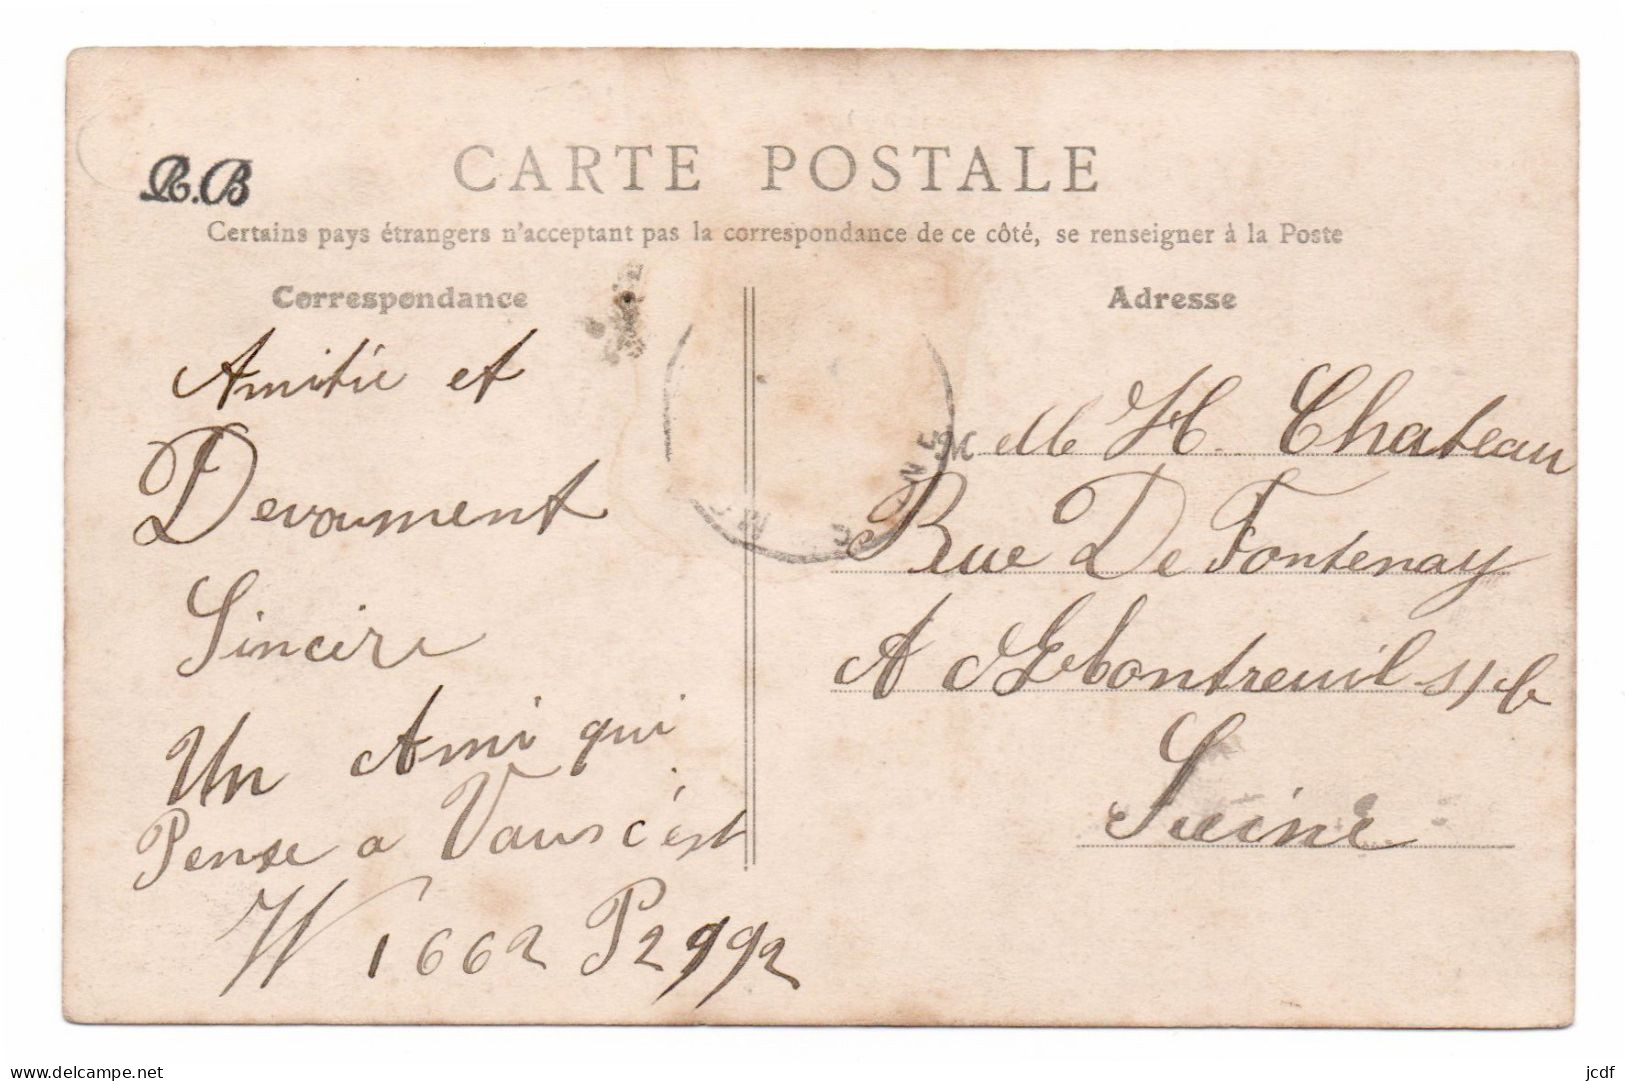 R.B
CARTE POSTALE
Certains pays étrangers n'acceptant pas la correspondance de ce côté, se renseigner à la Poste
Correspondance
Amitié et
Devoument
Sincire
Un Ami qui
Pense a Vous c'est
W 1662 P2992
Adresse
Melle H. Chateau
Rue De Fontenay
A Montreuil s/b
Seine
www.delcampe.net
jcdf